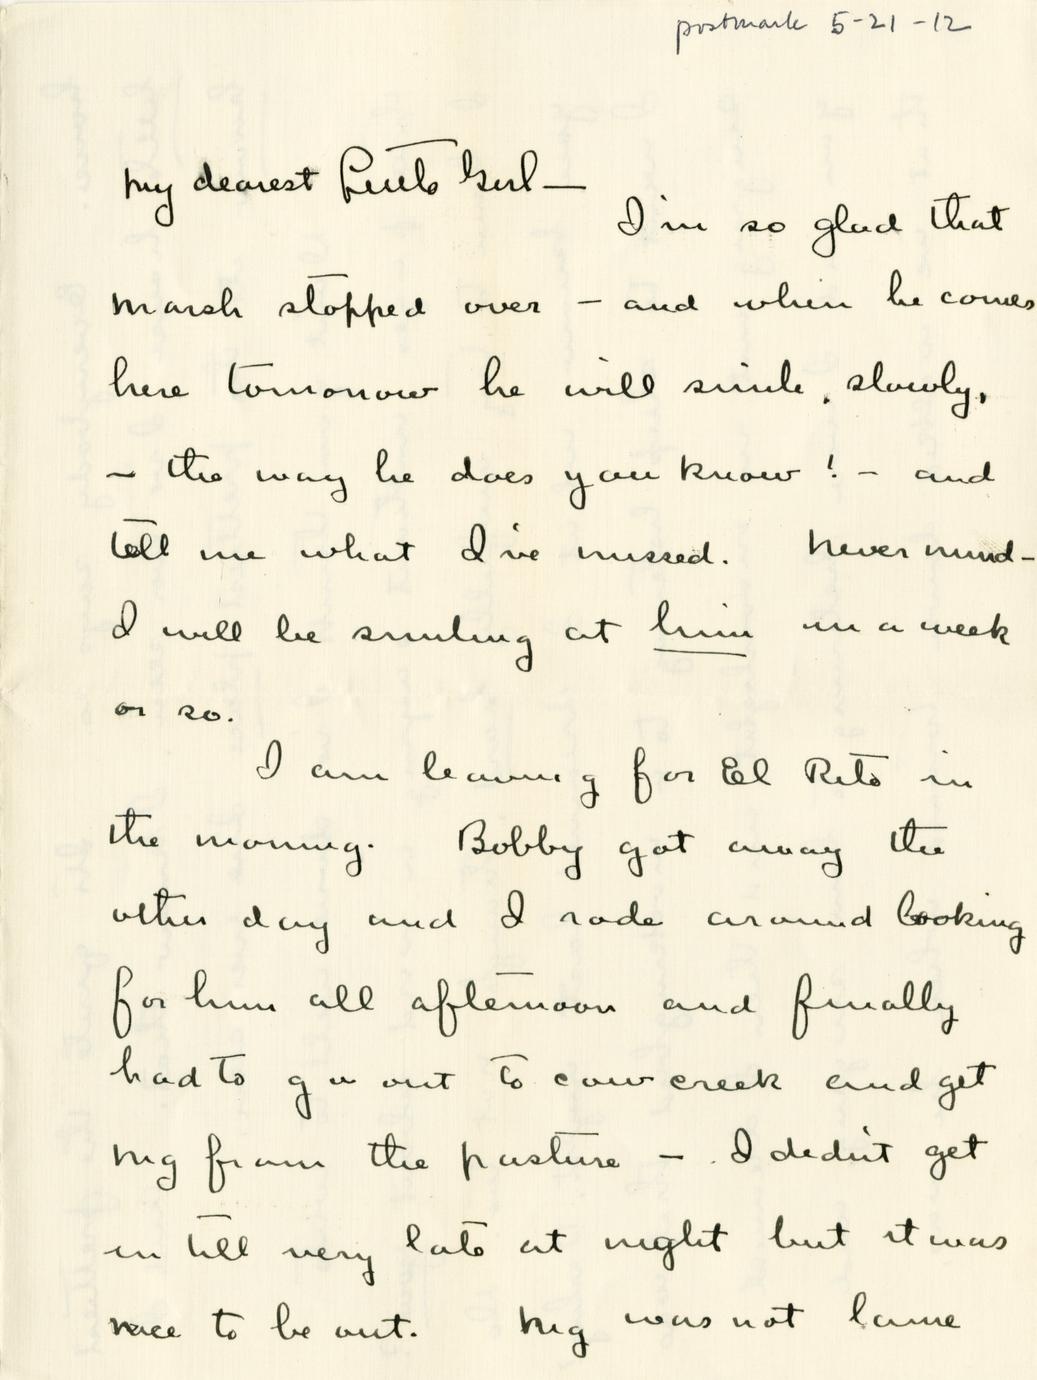 postmark 5-21-12
My dearest Little Girl —
I'm so glad that
Marsh stopped over — and when he comes
here tomorrow he will smile, slowly,
— the way he does you know! — and
tell me what I've missed. Never mind —
I will be smiling at him in a week
or so.
I am leaving for El Rito in
the morning. Bobby got away the
other day and I rode around looking
for him all afternoon and finally
had to go out to cow creek and get
Nig from the pasture — I didn't get
in till very late at night but it was
nice to be out. Nig was not lame